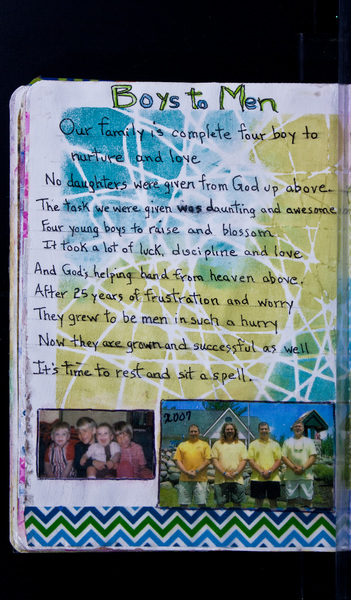 Boys to Men
Our family is complete four boy to
nurture and love
No daughters were given from God up above.
The task we were given was daunting and awesome
Four young boys to raise and blossom.
It took a lot of luck, discipline and love
And God's helping hand from heaven above.
After 25 years of frustration and worry
They grew to be men in such a hurry
Now they are grown and successful as well
It's time to rest and sit a spell.
2007